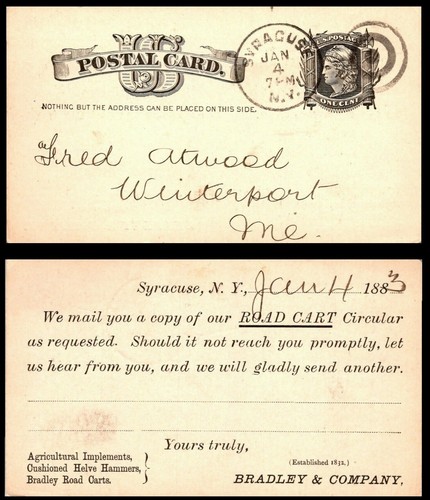 U S
POSTAL CARD.
SYRACUSE
JAN
4
N.Y.
U.S. POSTAGE
ONE CENT
NOTHING BUT THE ADDRESS CAN BE PLACED ON THIS SIDE.
Fred Atwood
Winterport
Me.
Syracuse, N. Y., Jan 4 1883
We mail you a copy of our ROAD CART Circular
as requested. Should it not reach you promptly, let
us hear from you, and we will gladly send another.
Yours truly,
Agricultural Implements,
Cushioned Helve Hammers,
Bradley Road Carts.
(Established 1832.)
BRADLEY & COMPANY,